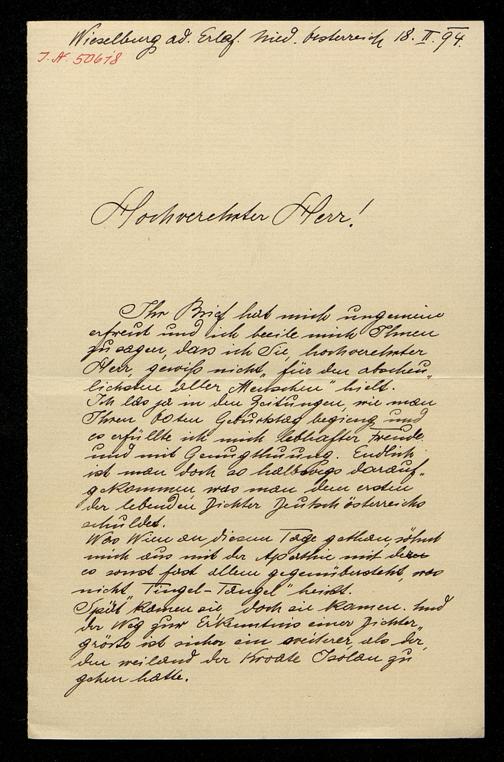 Wieselburg a.d. Erlaf. Nied. Oesterreich 18. II. 94.
J. N. 50618
Hochverehrter Herr!
Ihr Brief hat mich ungemein
erfreut und ich beeile mich Ihnen
zu sagen, dass ich Sie, hochverehrter
Herr, gewiß nicht „für den abscheu„
lichsten aller Menschen" hielt.
Ich las ja in den Zeitungen, wie man
Ihren 60ten Geburtstag begieng und
es erfüllte mich lebhafter Freude
und mit Genugthuung. Endlich
ist man doch so halbwegs darauf„
gekommen was man dem ersten
der lebenden Dichter Deutschösterreichs
schuldet.
Was Wien an diesem Tage gethan, söhnt
mich aus mit der Apathie mit der
es sonst fast allem gegenübersteht, was
nicht „Tingel-Tangel" heisst.
Spät kamen sie, doch sie kamen. Und
der Weg zur Erkenntnis einer Dichter„
größe ist sicher ein weiterer als der,
den weiland der Kroate Isolan zu
gehen hatte.